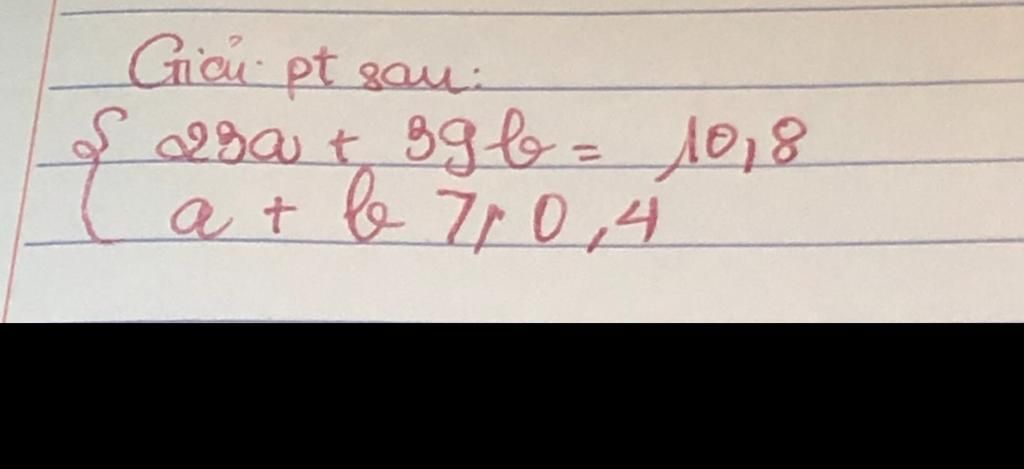 Giải pt sau:
{ 23a + 39b = 10,8
a + b 7, 0,4